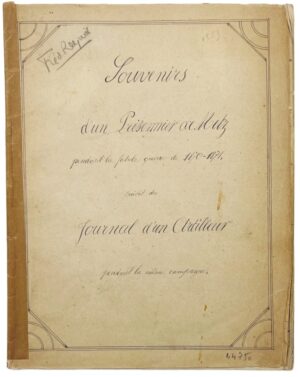 Très Rare
Souvenirs
d'un Prisonnier de Metz
pendant la guerre de 1870-1871.
suivi du
Journal d'un Artilleur
pendant la même campagne.
4475